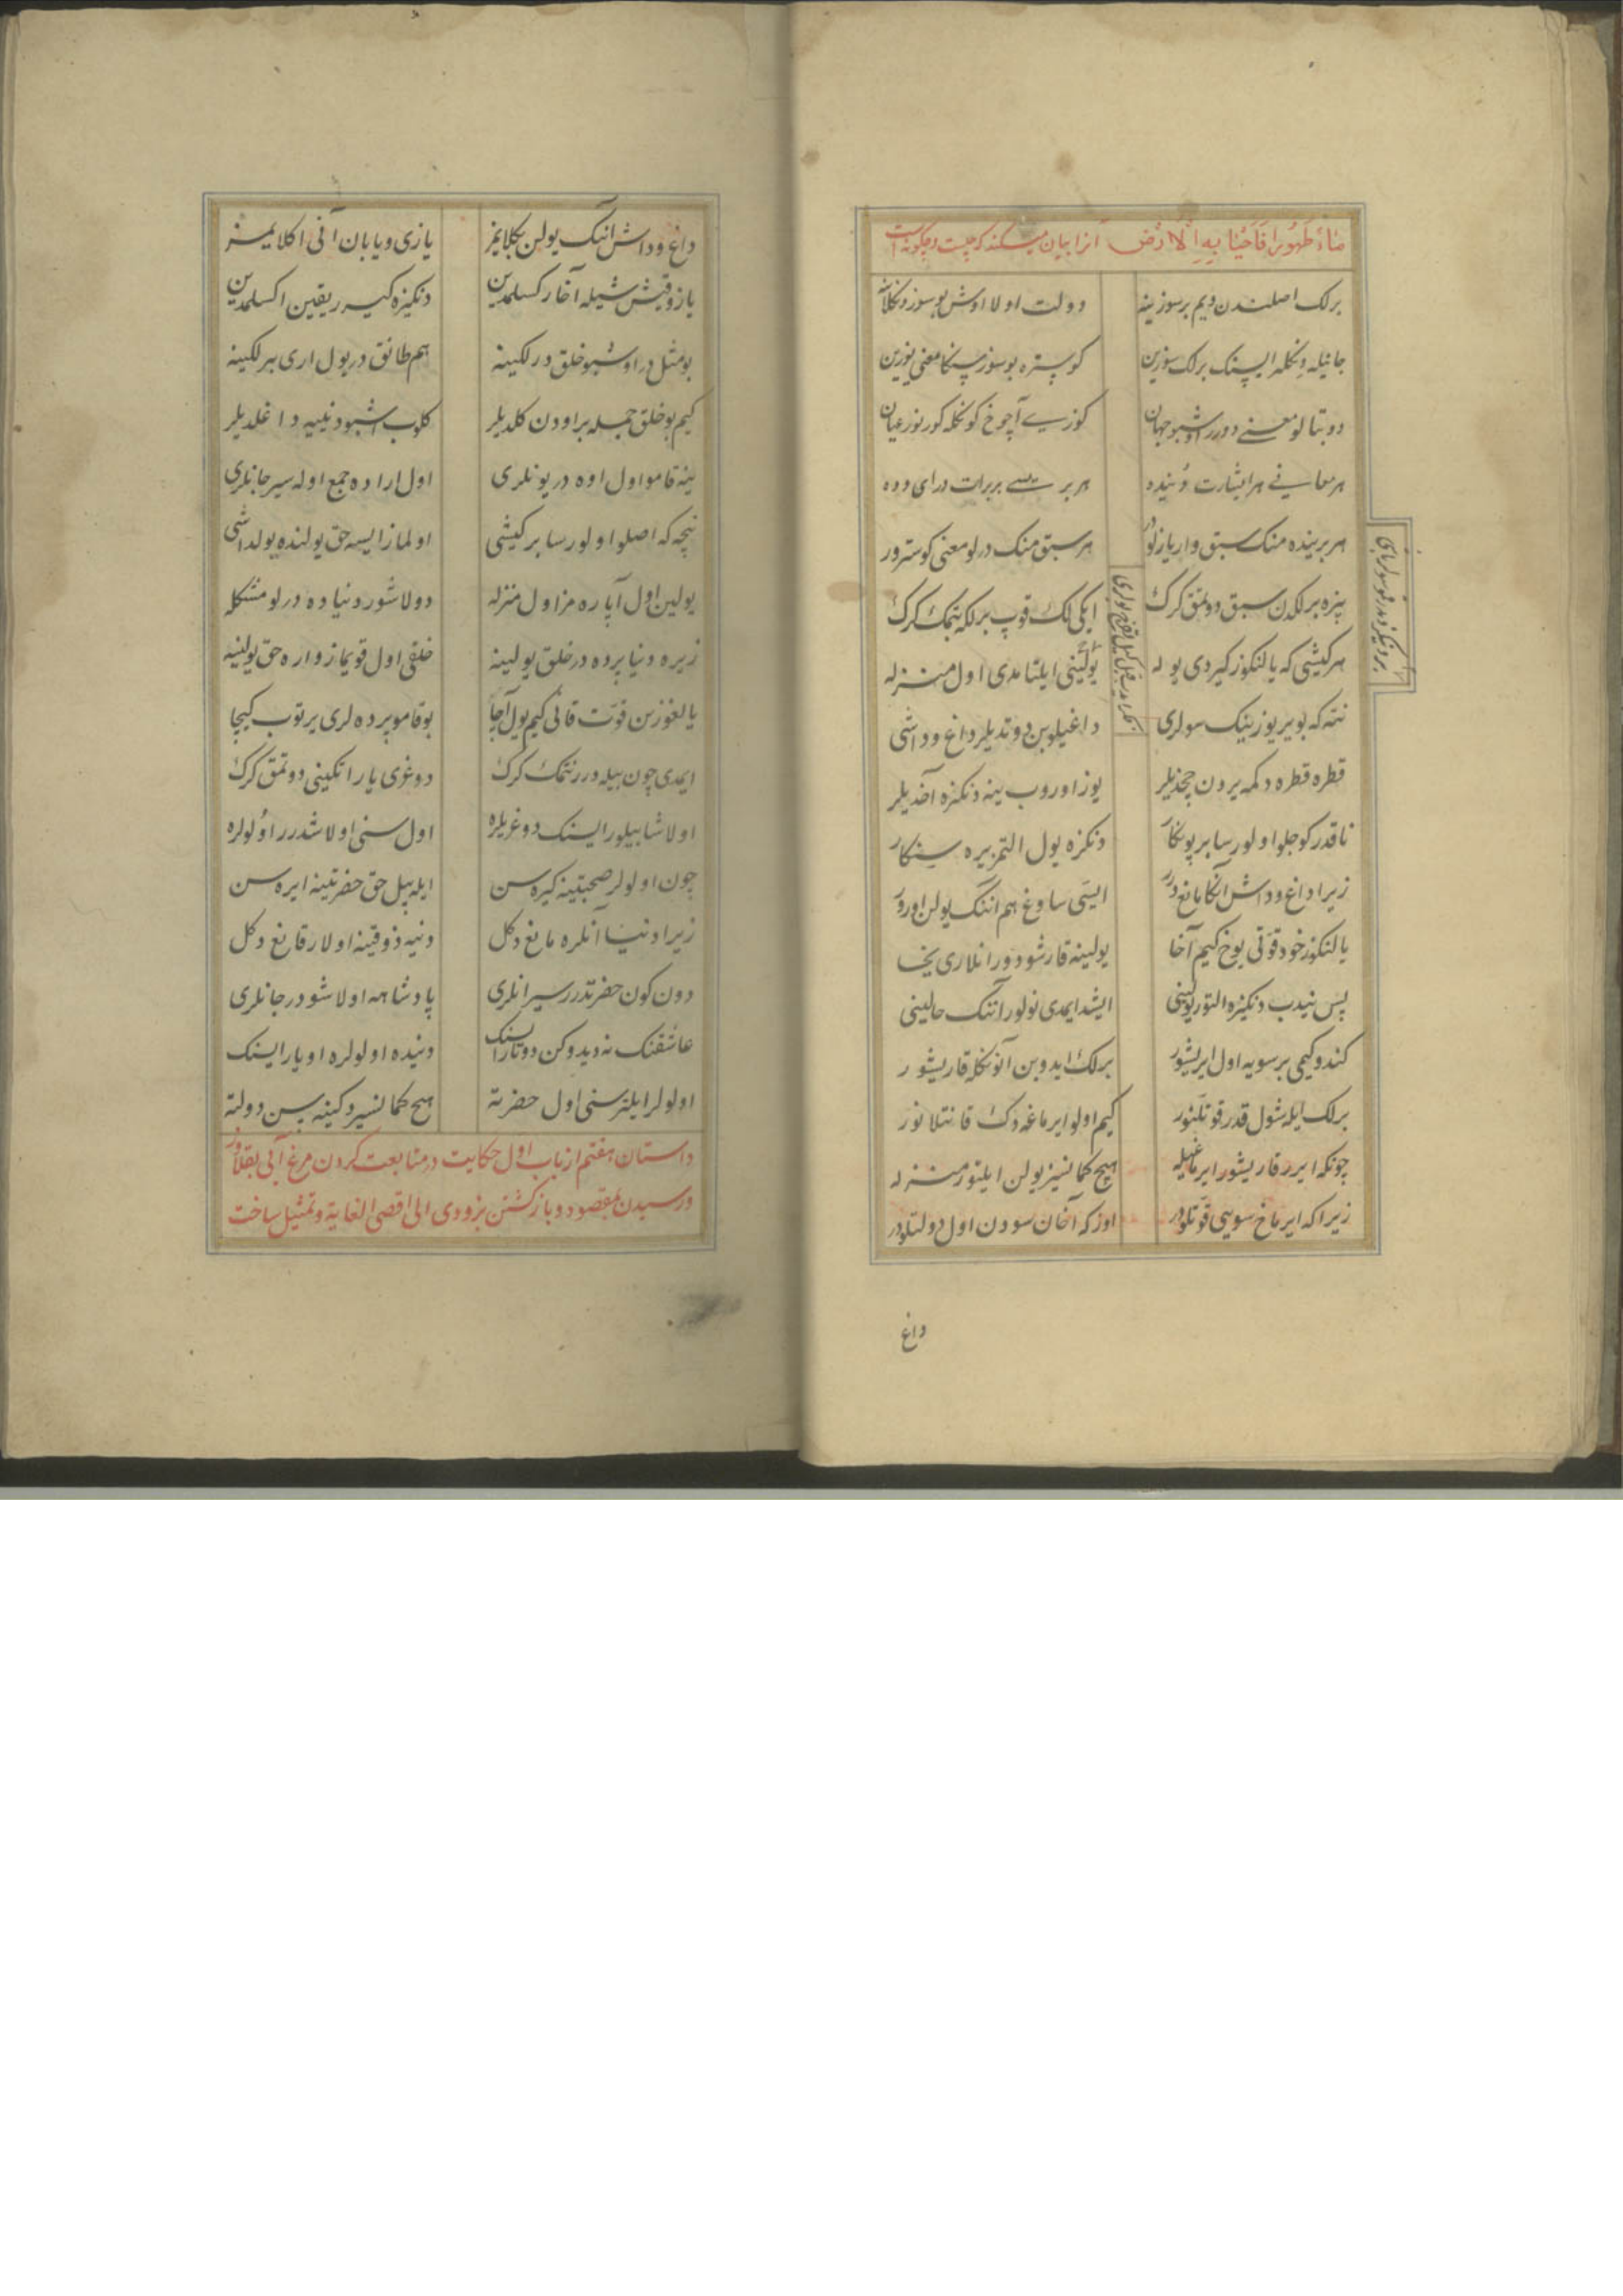 ماءً طَهُورًا فَاَحْيَنَا بِهِ الْاَرْض انرا بیان میکند که چیست و چگونه است
برلک اصلندن دیم بر سوز ینه دولت اولا اوش بو سوز دکلاینه
جانیله دکله ایسنک برلک سوزین کوستره بو سوز سنکا معنی یوزین
دوبتالو معنی دورر اوشبو جهان کوزی آچوغ کونکله کورنور عیان
هر معانی هر اشارت دنیده هر بریسی بربرات درای دده
هر برینده منک سبق وار یازلور هر سبق منک درلو معنی کوسترور
بیزه برلکدن سبق دوتمق کرک ایکی لک قوپ برلکه یتمک کرک
هر کیشی که یالنکوز کیردی یوله یولینی ایلتامدی اول منزله
نته که بو یر یوزینک سولری داغیلوبن دوتدیلر داغ و داشی
قطره قطره دکمه یردن چخدیلر یوز اوروب ینه دنکزه آخدیلر
ناقدر کوجلو اولورسا بر پونکار دنکزه یول التمز یره سینکار
زیرا داغ و داش انکا مانع درر ایسی ساوغ هم اننک یولن اورور
یالنکوز خود قوتی یوخ کیم آخا یولینه قارشو دورانلاری یخا
پس نیدب دنکیزه التور یولینی ایشد ایمدی نولور اننک حالینی
کندو کیمی بر سویه اول ایریشور برلک ایدوبن آنونکله قاریشور
برلک ایله شول قدر قوتلنور کیم اولو ایرماغه دک قانتلانور
چونکه ایرر قاریشور ایرماغیله هیچ کمانسیز یولن ایلتور منزله
زیرا که ایرماخ سویی قوتلودر اوزکه آخان سودن اول دولتلودر
داغ
داغ و داش اننک یولن بکلایمز یازی و یابان آنی اکلایمز
یاز و قیش شیله آخار کسلمدین دنکیزه کیرر یقین اکسلمدین
بو مثل در اوشبو خلق درلکینه هم طانق در یول اری بیرلکینه
کیم بو خلق جمله بر اودن کلدیلر کلوب اشبو دنییه داغلدیلر
ینه قامو اول اوه در یونلری اول اراده جمع اوله سیر جانلری
نیجه که اصلو اولورسا بر کیشی اولماز ایسه حق یولنده یولداشی
یولین اول آپاره مز اول منزله دولاشور دنیاده درلو مشکله
زیره دنیا پرده در خلق یولینه خلقی اول قویماز واره حق یولینه
یالغوزین قوت قانی کیم یول آچا بو قامو پرده لری یرتوب کیچا
ایمدی چون بیله درر نتمک کرک دوغری یار اتکینی دوتمق کرک
اولاشا بیلور ایسنک دوغریلره اول سنی اولاشدرر اولولره
چون اولولر صحبتینه کیره سن ایله بیل حق حضرتینه ایره سن
زیرا دنیا آنلره مانع دکل دنیه ذوقینه اولار قانع دکل
دون کون حضرتدر سیرانلری پادشاهه اولاشودر جانلری
عاشقنک نه دیدوکن دوتارایسنک دنیده اولولره اویارایسنک
اولولر ایلتر سنی اول حضرته هیچ کمانسیز دکینه سن دولته
داستان هفتم از باب اول حکایت در متابعت کردن مرغ آبی بقلاوز
ورسیدن بمقصود و باز کشتن بزودی الی اقصی الغایة و تمثیل ساخت